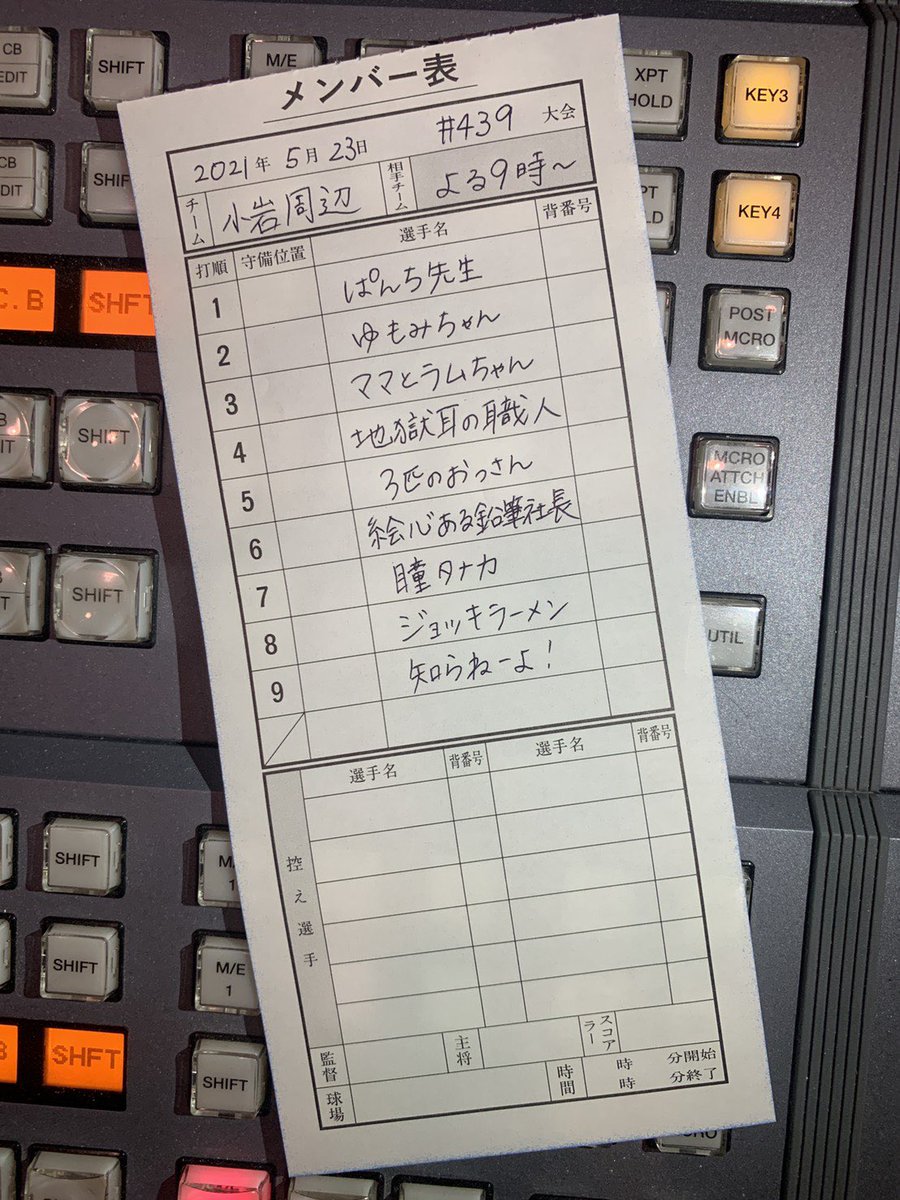 CB
EDIT
SHIFT
M/E
XPT
HOLD
KEY3
CB
EDIT
SHIFT
KEY4
C.B
SHFT
POST
MCRO
SHIFT
MCRO
ATTCH
ENBL
SHIFT
UTIL
メンバー表
2021年 5月 23日 #439 大会
チーム 小岩周辺 相手チーム よる9時~
打順 守備位置 選手名 背番号
1 ぱんち先生
2 ゆもみちゃん
3 ママとラムちゃん
4 地獄耳の職人
5 3匹のおっさん
6 絵心ある鉛筆社長
7 瞳タナカ
8 ジョッキラーメン
9 知らねーよ!
控え選手 選手名 背番号 選手名 背番号
監督 主将 スコアラー
球場 時間 時 分開始
時 分終了
SHIFT
M/
1
SHIFT
M/E
1
SHFT
SHIFT